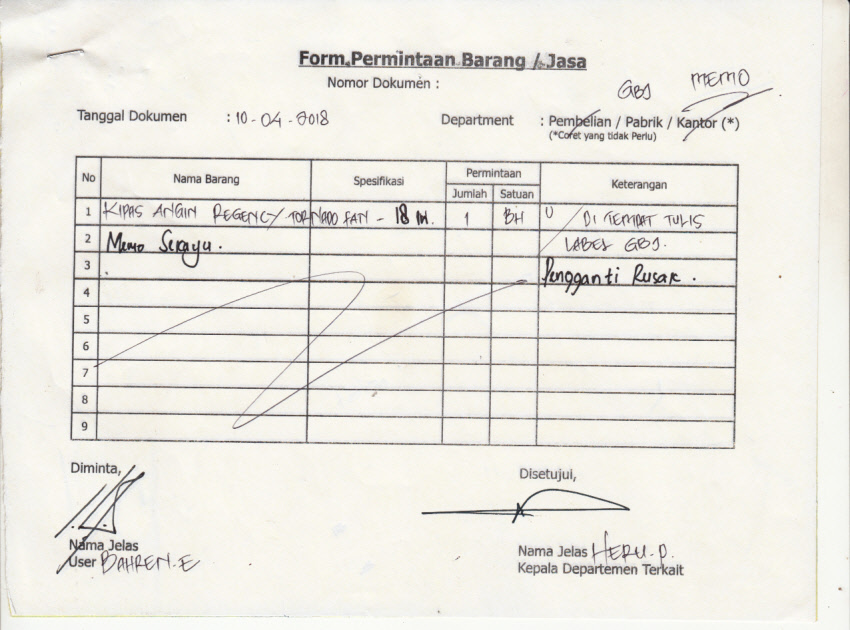 Form Permintaan Barang / Jasa
Nomor Dokumen :
GBJ MEMO
Tanggal Dokumen : 10-04-2018 Department : Pembelian / Pabrik / Kantor (*)
(*Coret yang tidak Perlu)
No Nama Barang Spesifikasi Permintaan Keterangan
Jumlah Satuan
1 KIPAS ANGIN REGENCY TORNADO FAN - 18 IN. 1 BH U DI TEMPAT TULIS
2 Memo Serayu. LABEL GBJ.
3 Pengganti Rusak.
4
5
6
7
8
9
Diminta, Disetujui,
Nama Jelas Nama Jelas HERU.P.
User BAHREN.E Kepala Departemen Terkait